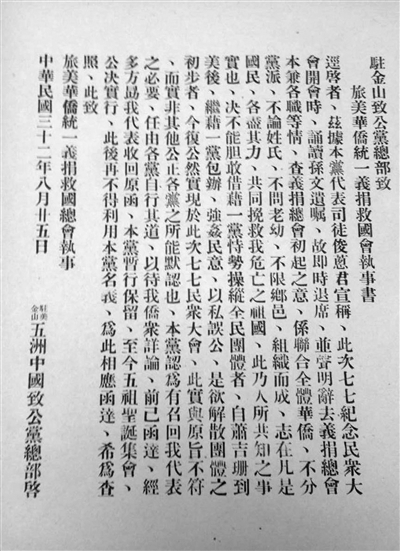 駐金山致公黨總部致
旅美華僑統一義捐救國會執事書
逕啓者、茲據本黨代表司徒俊蒽君宣稱、此次七七紀念民衆大
會開會時、誦讀孫文遺囑、故卽時退席、並聲明辭去義捐總會
本兼各職等情、查義捐總會初起之意、係聯合全體華僑、不分
黨派、不論姓氏、不問老幼、不限鄉邑、組織而成、志在凡是
國民、各盡其力、共同挽救我危亡之祖國、此乃人所共知之事
實也、决不能胆敢借藉一黨恃勢操縱全民團體者、自蕭吉珊到
美後、繼藉一黨包辦、強姦民意、以私誤公、是欲解散團體之
初步者、今復公然實現於此次七七民衆大會、此實與原旨不符
、而實非其他公正各黨之所能默認也、本黨認爲有召回我代表
之必要、任由各黨自行其道、以待我僑衆詳論、前已函達、經
多方勗我代表收回原函、本黨暫行保留、至今五祖聖誕集會、
公决實行、此後再不得利用本黨名義、爲此相應函達、希爲查
照、此致
旅美華僑統一義捐救國總會執事
駐美金山五洲中國致公黨總部啓
中華民國三十二年八月廿五日